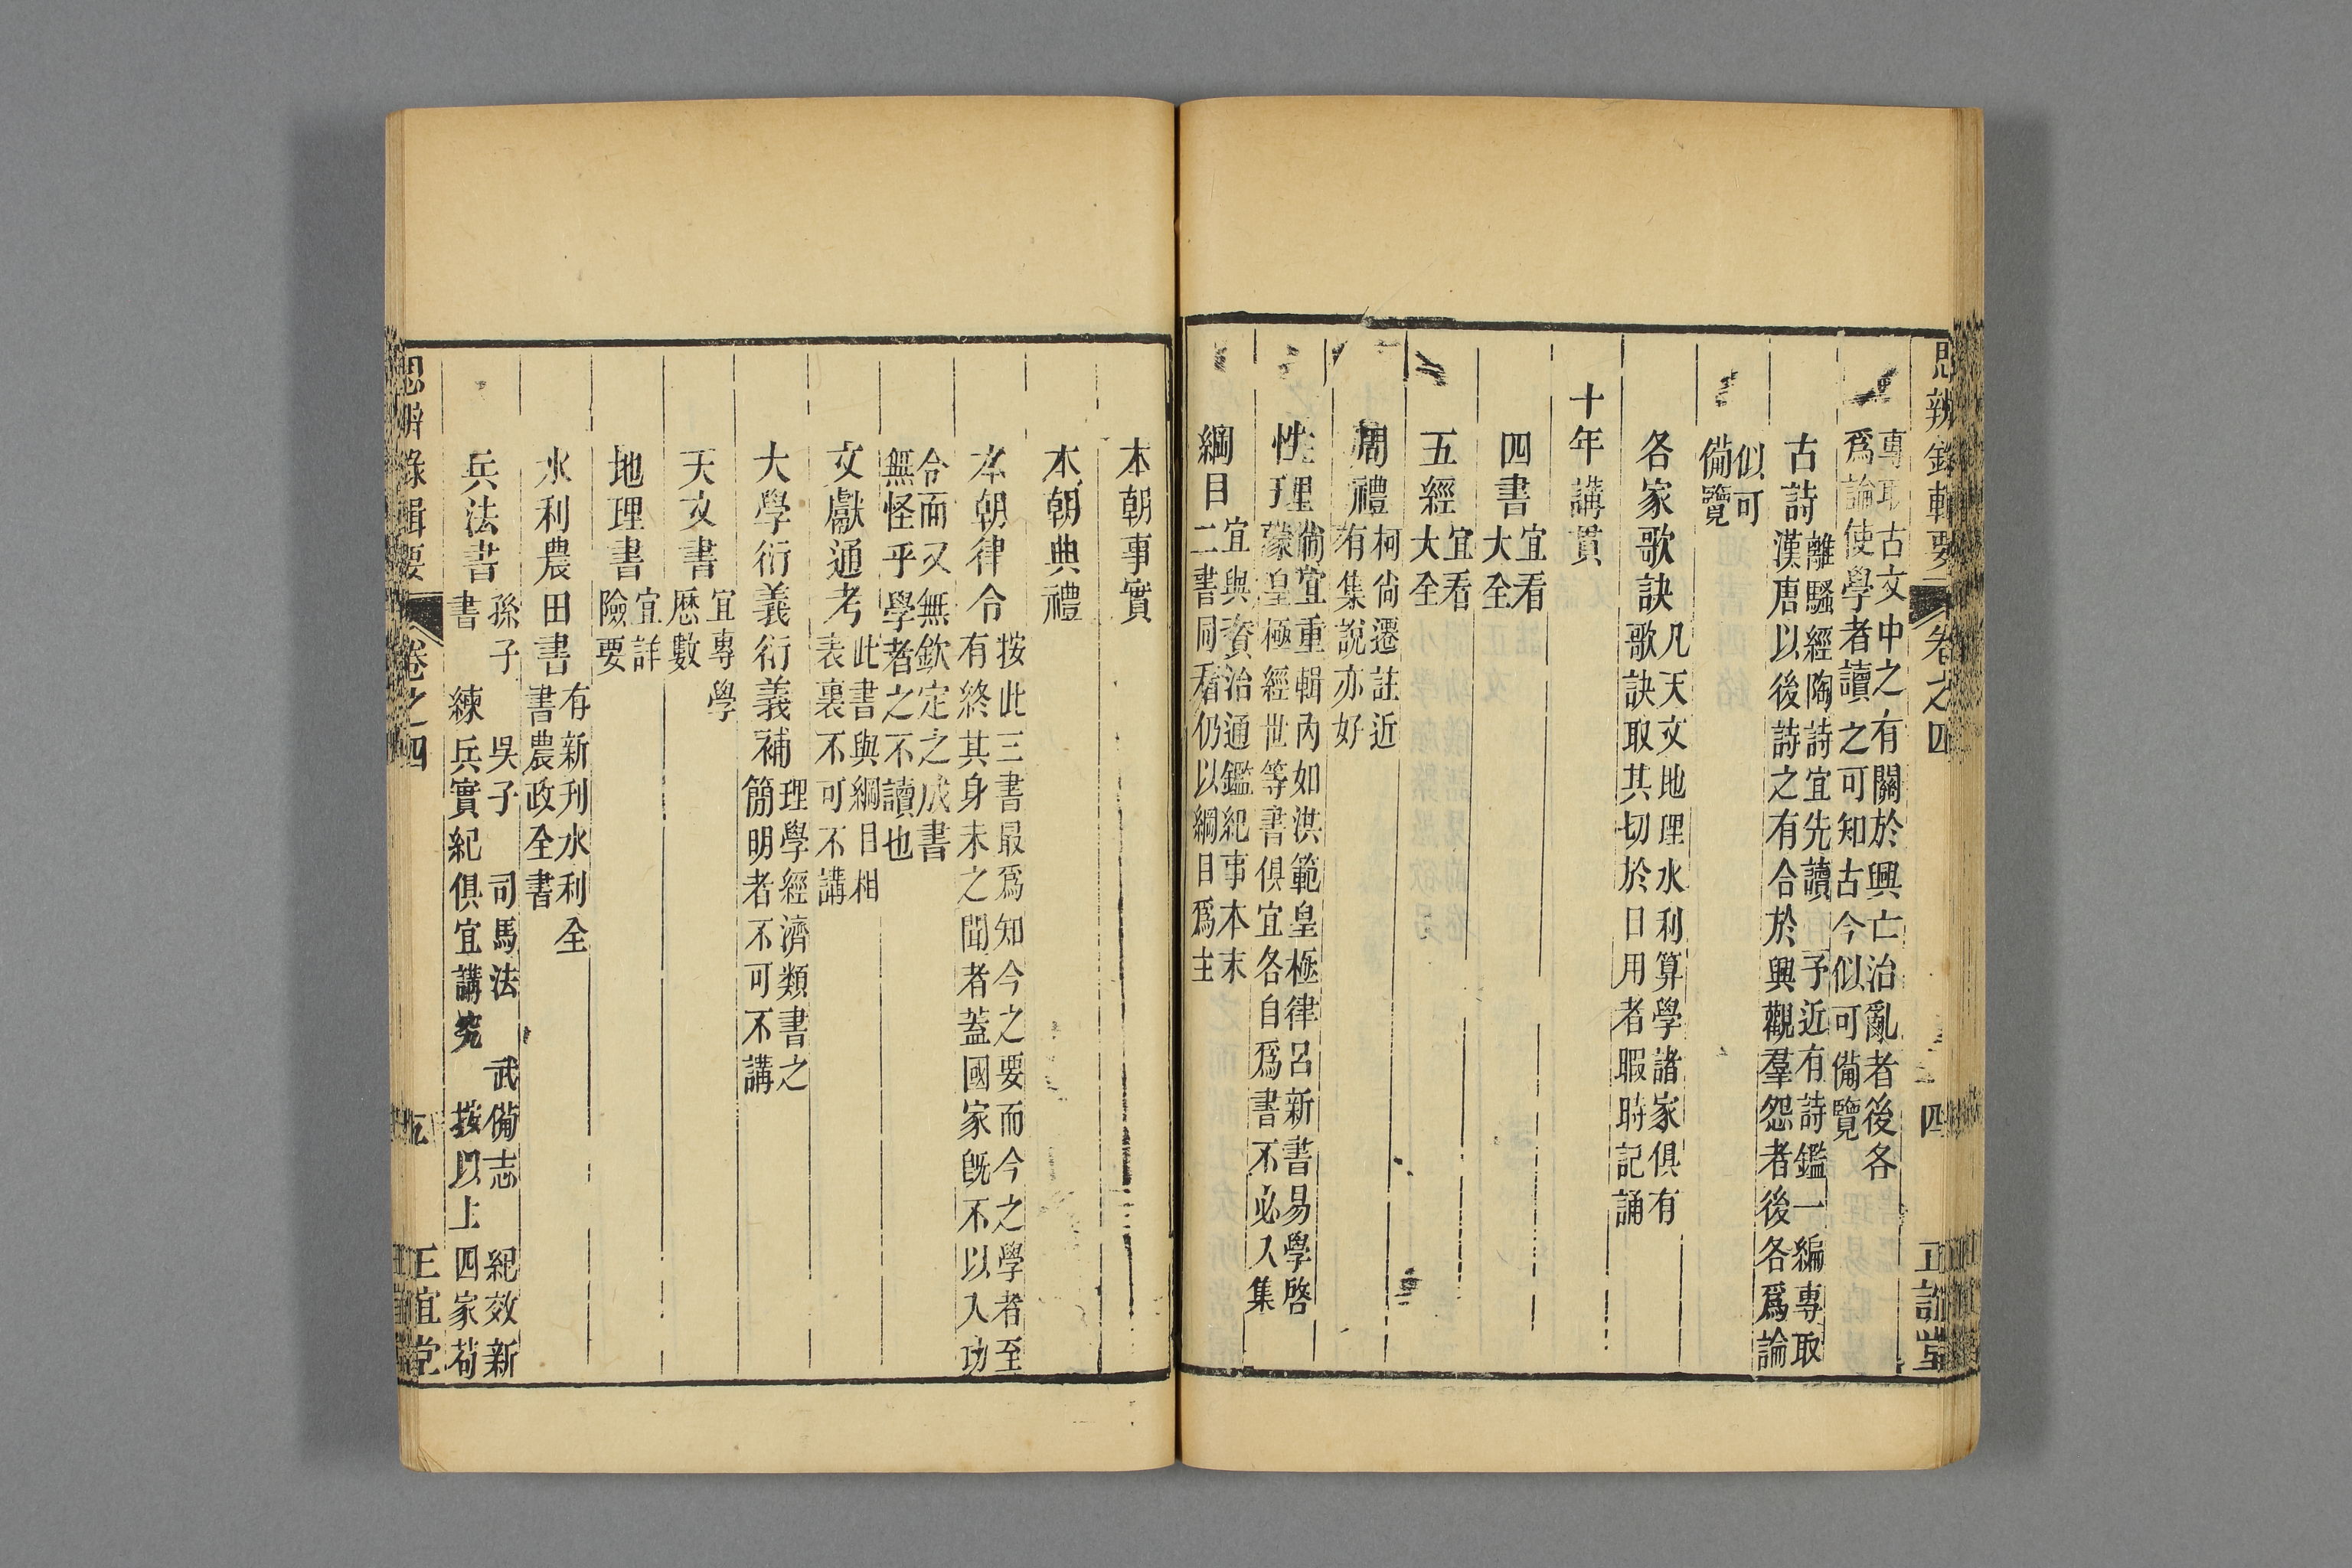 思辨錄輯要 卷之四 四 正誼堂
專取古文中之有關於興亡治亂者後各
爲論使學者讀之可知古今似可備覽
古詩
離騷經陶詩宜先讀予近有詩鑑一編專取
漢唐以後詩之有合於興觀羣怨者後各爲論
似可
備覽
各家歌訣
凡天文地理水利算學諸家俱有
歌訣取其切於日用者暇時記誦
十年講貫
四書
宜看
大全
五經
宜看
大全
周禮
柯尚遷註近
有集說亦好
性理
尚宜重輯內如洪範皇極律呂新書易學啓
蒙皇極經世等書俱宜各自爲書不必入集
綱目
宜與資治通鑑紀事本末
二書同看仍以綱目爲主
本朝事實
本朝典禮
本朝律令
按此三書最爲知今之要而今之學者至
有終其身未之聞者蓋國家旣不以入功
令而又無欽定之成書
無怪乎學者之不讀也
文獻通考
此書與綱目相
表裏不可不講
大學衍義衍義補
理學經濟類書之
簡明者不可不講
天文書
宜專學
厯數
地理書
宜詳
險要
水利農田書
有新刋水利全
書農政全書
兵法書
孫子 吳子 司馬法 武備志 紀效新
書 練兵實紀俱宜講究 按以上四家苟
思辨錄輯要 卷之四 五 正誼堂